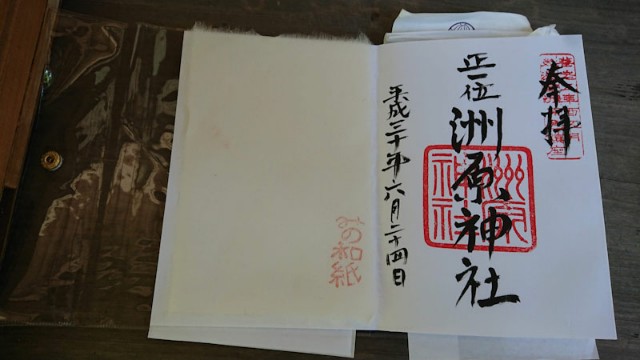 奉拝
正一位
洲原神社
洲原
神社
平成三十年六月二十四日
みの和紙